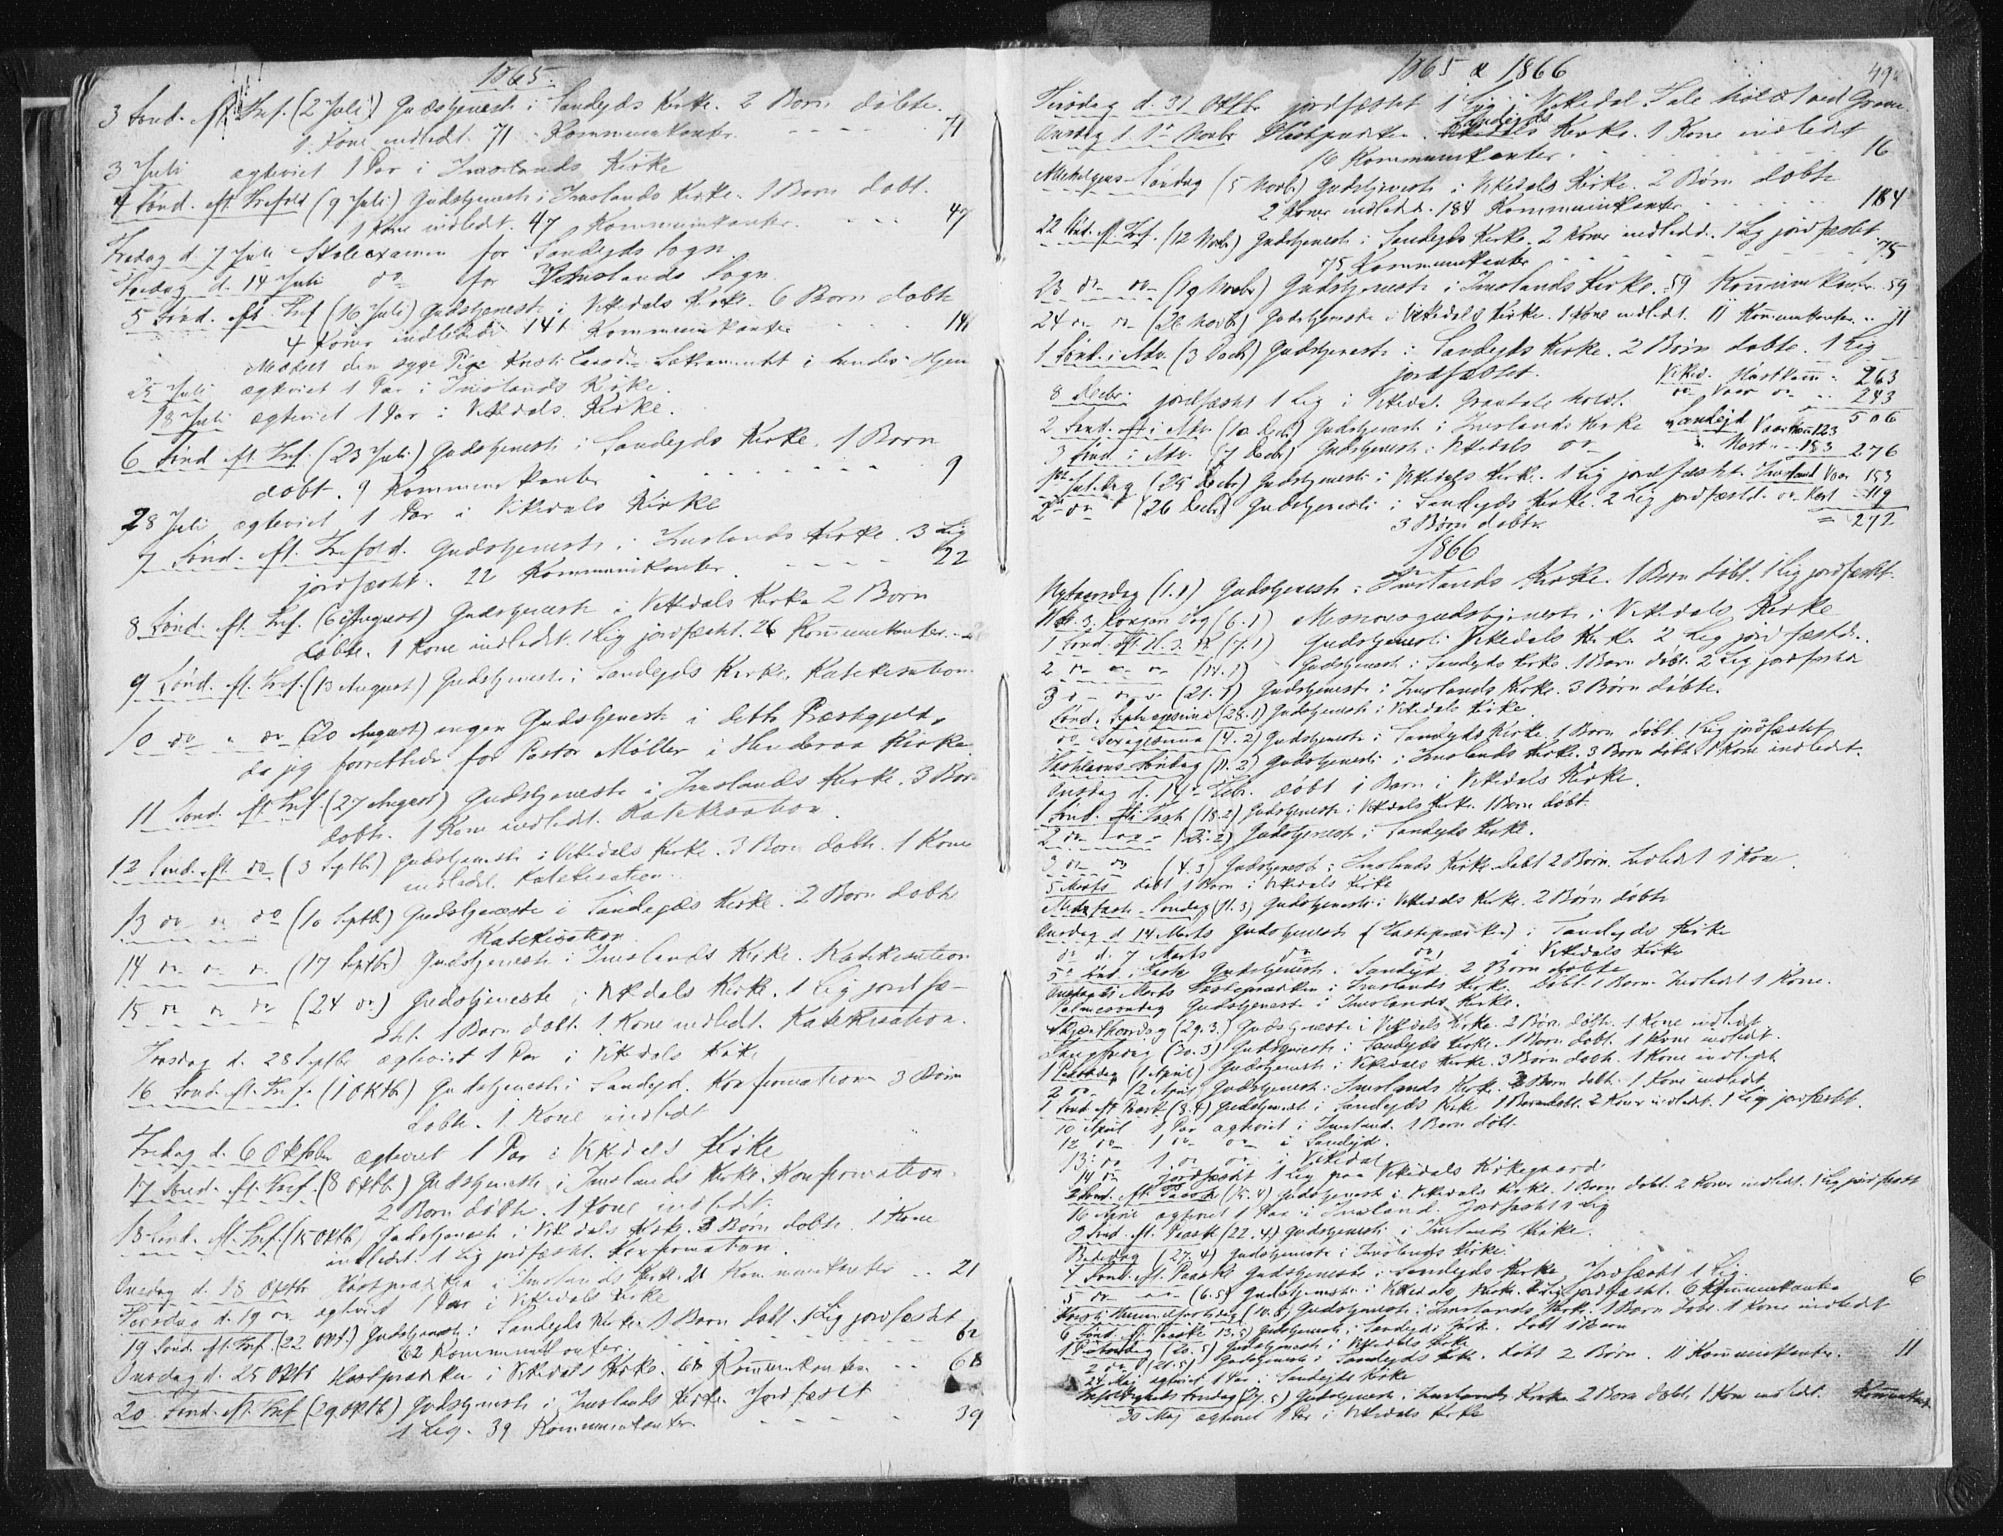 1865.
3 Sønd. eft. Tref. (2 Juli) Gudstjeneste i Sandejds Kirke. 2 Børn døbte.
1 Kone indledt. 71 Kommunikanter. 71
3 Juli ægteviet 1 Par i Imslands Kirke
4 Sønd. eft. Trefold (9 Juli) Gudstjeneste i Imslands Kirke. 1 Barn døbt.
1 Kone indledt. 47 Kommunikanter. 47
Fredag d. 7 Juli Skoleexamen for Sandejds Sogn
Fredag d. 14 Juli do for Imslands Sogn
5 Sønd. eft. Tref (16 Juli) Gudstjeneste i Vikedals Kirke. 6 Børn døbte
4 Koner indledte 141 Kommunikanter 141
Meddelt den syge Pige Sakramentet i hendes Hjem
25 Juli ægteviet 1 Par i Imslands Kirke.
18 Juli ægteviet 1 Par i Vikedals Kirke.
6 Sønd. eft. Tref. (23 Juli) Gudstjeneste i Sandejds Kirke. 1 Barn
døbt. 9 Kommunikanter 9
28 Juli ægteviet 1 Par i Vikedals Kirke
7 Sønd. eft. Trefold. Gudstjeneste i Imslands Kirke. 3 Lig
jordfæstet. 22 Kommunikanter. 22
8 Sønd. eft. Tref. (6 August) Gudstjeneste i Vikedals Kirke 2 Børn
døbte. 1 Kone indledt. 1 Lig jordfæstet. 26 Kommunikanter.
9 Sønd. eft. Tref. (13 August) Gudstjeneste i Sandejds Kirke. Katekisation
10 do do (20 August) ingen Gudstjeneste i dette Præstegjeld,
da jeg forrettede for Pastor Møller i Kirke
11 Sønd. eft. Tref. (27 August) Gudstjeneste i Imslands Kirke. 3 Børn
døbte. 1 Kone indledt. Katekisation.
12 Sønd. eft. do (3 Septb.) Gudstjeneste i Vikedals Kirke. 3 Børn døbte. 1 Kone
indledt. Katekisation.
13 do do (10 Septb.) Gudstjeneste i Sandejds Kirke. 2 Børn døbte
Katekisation
14 do do (17 Septbr) Gudstjeneste i Imslands Kirke. Katekisation
15 do do do (24 do) Gudstjeneste i Vikedals Kirke. 1 Lig jordfæ-
stet. 1 Barn døbt. 1 Kone indledt. Katekisation.
Torsdag d. 28 Septbr ægteviet 1 Par i Vikedals Kirke
16 Sønd. eft. Tref. (1 Oktb.) Gudstjeneste i Sandejd. Konfirmation 3 Børn
døbte. 1 Kone indledt
Fredag d. 6 Oktober ægteviet 1 Par i Vikedals Kirke
17 Sønd. eft. Tref. (8 Oktb.) Gudstjeneste i Imslands Kirke. Konfirmation.
2 Børn døbte. 1 Kone indledt.
18 Sønd. eft. Tref. (15 Oktb) Gudstjeneste i Vikedals Kirke. 3 Børn døbte. 1 Kone
indledt. 1 Lig jordfæstet. Konfirmation.
Onsdag d. 18 Oktbr Høstpræken i Imslands Kirke. 21 Kommunikanter 21
Torsdag d. 19 do ægteviet 1 Par i Vikedals Kirke
19 Sønd. eft. Tref. (22 Okt.) Gudstjeneste i Sandejds Kirke 1 Barn døbt. 1 Lig jordfæstet
62 Kommunikanter. 62
Onsdag d. 25 Oktbr Høstpræken i Vikedals Kirke. 68 Kommunikanter 68
20 Sønd. eft. Tref (29 Oktb) Gudstjeneste i Imslands Kirke. Jordfæstet
1 Lig. 39 Kommunikanter. 39
1865 & 1866
49
Tirsdag d. 31 Oktbr jordfæstet 1 Lig i Vikedal. Tale holdt ved Graven.
Onsdag d. 1 Novbr Høstpræken Sandejds Kirke. 1 Kone indledt
16 Kommunikanter. 16
Allehelgens Søndag (5 Novb.) Gudstjeneste i Vikedals Kirke. 2 Børn døbte
2 Koner indledte. 184 Kommunikanter 184
22 Sønd. eft. Tref. (12 Novb.) Gudstjeneste i Sandejds Kirke. 2 Koner indledte. 1 Lig jordfæstet
75 Kommunikanter 75
23 do do (19 Novbr) Gudstjeneste i Imslands Kirke. 59 Kommunikanter 59
24 do do (26 Novb) Gudstjeneste i Vikedals Kirke. 1 Kone indledt. 11 Kommunikanter 11
1 Sønd. i Adv. (3 Decb) Gudstjeneste i Sandejds Kirke. 2 Børn døbte. 1 Lig
jordfæstet. Viked. Høstkom. 263
8 Decbr. jordfæstet 1 Lig i Vikedal. Gravtale holdt. do Vaar do 243
2 Sønd. i Adv. (10 Decb) Gudstjeneste i Imslands Kirke Sandejd Vaarkom 123 506
3 Sønd. i Adv. (17 Decb) Gudstjeneste i Vikedals do Høst 153 276
1ste Juledag (25 Decbr) Gudstjeneste i Vikedals Kirke. 1 Lig jordfæstet. Imsland Vaar 153
2 do (26 Decbr) Gudstjeneste i Sandejds Kirke. 2 Lig jordfæstet. do Høst 119
3 Børn døbte = 272
1866
Nytaarsdag (1.1) Gudstjeneste i Imslands Kirke. 1 Barn døbt. 1 Lig jordfæstet.
H. 3 Kongers Dag (6.1) Missionsgudstjeneste i Vikedals Kirke
1 Sønd. eft. H. 3. K (7.1) Gudstjeneste Vikedals Kirke 2 Lig jordfæstede.
2 do do (14.1) Gudstjeneste i Sandejds Kirke 1 Barn døbt. 2 Lig jordfæstede
3 do do (21.1) Gudstjeneste i Imslands Kirke. 3 Børn døbte.
Sønd. Septuagesima (28.1) Gudstjeneste i Vikedals Kirke
do Sexagesima (4.2) Gudstjeneste i Sandejds Kirke. 1 Barn døbt. 1 Lig jordfæstet
Fastelavns Søndag (11.2) Gudstjeneste i Imslands Kirke. 3 Børn døbte 1 Kone indledt.
Onsdag d. 14 Feb. døbt 1 Barn i Vikedals Kirke.
1 Sønd. i Faste (18.2) Gudstjeneste i Vikedals Kirke. 1 Barn døbt.
2 do do (25.2) Gudstjeneste i Sandejds Kirke.
3 do do (4.3) Gudstjeneste i Imslands Kirke døbt 2 Børn. Indledt 1 Kone.
5 Marts døbt 1 Barn i Vikedals Kirke
Midfaste Søndag (11.3) Gudstjeneste i Vikedals Kirke. 2 Børn døbte
Onsdag d 14 Marts Gudstjeneste (Fastepræken) i Sandejds Kirke
do d. 7 Marts do do i Vikedals Kirke
5 Sønd. i Faste Gudstjeneste i Sandejd 2 Børn døbte
Onsdag 21 Marts Fastepræken i Imslands Kirke. Døbt 1 Barn. Indledt 1 Kone.
Palmesøndag Gudstjeneste i Imslands Kirke.
Skjærthorsdag (29.3.) Gudstjeneste i Vikedals Kirke. 2 Børn døbte. 1 Kone indledt
Langfredag (30.3) Gudstjeneste i Sandejds Kirke. 1 Barn døbt. 1 Kone indledt.
1 Paaskedag (1 April) Gudstjeneste i Vikedals Kirke. 3 Børn døbte. 1 Kone indledt
2 do 2 April Gudstjeneste i Imslands Kirke. 2 Børn døbte. 1 Kone indledt
1 Sønd. eft. Paask (8.4) Gudstjeneste i Sandejds Kirke 1 Barn døbt. 2 Koner indledt. 1 Lig jordfæstet.
10 April 8 Par ægteviet i Imsland. 1 Barn døbt.
12 do 1 do do i Sandejd.
13 do 1 do do i Vikedal
14 do Jordfæstet 1 Lig paa Vikedals Kirkegaard
2 Sønd. eft. Paaske (15.4) Gudstjeneste i Vikedals Kirke. 1 Barn døbt. 2 Koner indledt. 1 Lig jordfæstet
16 April ægteviet 1 Par i Imsland. Jordfæstet 1 Lig
3 Sønd. eft. Paask (22.4) Gudstjeneste i Imslands Kirke.
Bededag (27.4) Gudstjeneste i Imslands Kirke.
4 Sønd. eft. Paaske Gudstjeneste i Sandejds Kirke Jordfæstet 1 Lig
5 do do (6.5) Gudstjeneste i Vikedals Kirke. 1 Lig jordfæstet. 6 Kommunikanter 6
Kristi Himmelfartsdag (10.5) Gudstjeneste i Imslands Kirke. 1 Barn døbt. 1 Kone indledt
6 Sønd. eft. Paaske 13.5) Gudstjeneste i Sandejds Kirke. døbt 1 Barn
1 Pintsedag (20.5) Gudstjeneste i Vikedals Kirke
2 do (21.5) Gudstjeneste i Sandejds Kirke. døbt 2 Børn. 11 Kommunikanter. 11
24 Maj ægteviet 1 Par i Sandejds Kirke
Trefoldigheds Søndag (27.5) Gudstjeneste i Imslands Kirke 2 Børn døbte 1 Kone indledt.
30 Maj ægteviet 1 Par i Vikedals Kirke